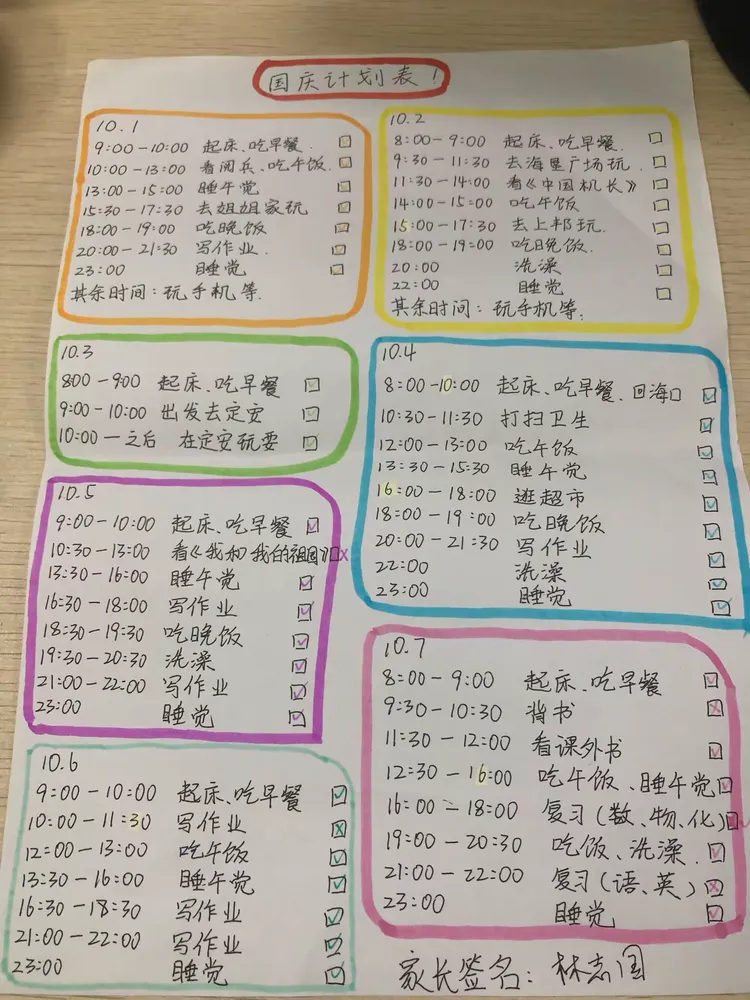 国庆计划表！
10.1
9:00-10:00 起床、吃早餐.
10:00-13:00 看阅兵、吃午饭.
13:00-15:00 睡午觉
15:30-17:30 去姐姐家玩
18:00-19:00 吃晚饭
20:00-21:30 写作业.
23:00 睡觉
其余时间：玩手机等.
10.2
8:00-9:00 起床、吃早餐.
9:30-11:30 去海垦广场玩.
11:30-14:00 看《中国机长》
14:00-15:00 吃午饭
15:00-17:30 去上邦玩.
18:00-19:00 吃晚饭.
20:00 洗澡
22:00 睡觉
其余时间：玩手机等.
10.3
8:00-9:00 起床、吃早餐
9:00-10:00 出发去定安
10:00-之后 在定安玩耍
10.4
8:00-10:00 起床、吃早餐、回海口
10:30-11:30 打扫卫生
12:00-13:00 吃午饭
13:30-15:30 睡午觉
16:00-18:00 逛超市
18:00-19:00 吃晚饭
20:00-21:30 写作业
22:00 洗澡
23:00 睡觉
10.5
9:00-10:00 起床、吃早餐
10:30-13:00 看《我和我的祖国》
13:30-16:00 睡午觉
16:30-18:00 写作业
18:30-19:30 吃晚饭
19:30-20:30 洗澡
21:00-22:00 写作业
23:00 睡觉
10.6
9:00-10:00 起床、吃早餐
10:00-11:30 写作业
12:00-13:00 吃午饭
13:30-16:00 睡午觉
16:30-18:30 写作业
21:00-22:00 写作业
23:00 睡觉
10.7
8:00-9:00 起床、吃早餐
9:30-10:30 背书
11:30-12:00 看课外书
12:30-16:00 吃午饭、睡午觉
16:00-18:00 复习（数、物、化）
19:00-20:30 吃饭、洗澡.
21:00-22:00 复习（语、英）
23:00 睡觉
家长签名：林志国